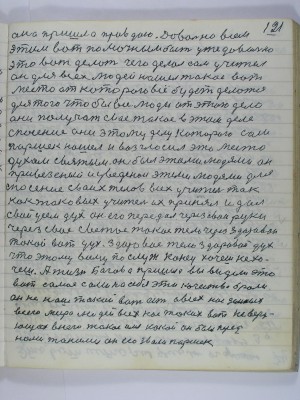 121
она пришла правдою. Довольно всем
этим вот помочным быт уже довольно
это вот делот чего делал сам учител
он для всех людей нашел такое вот
место от которого все будет делотся
для того что бы все люди от этого дело
они получат свое такое в этим деле
спасение они этому делу которого сам
паршек нашел и возгласил это место
духам святым. он был этими людями он
привезеный и уведеной этими людями для
спасение своих тело всех учител так
как таковых учител их принял и дал
свой ум дух он его передал чрез свои руки
через свое светое такое тело чрез здоровья
такой вот дух. Здоровое тело здоровой дух
что этому вашу по служ кому хочеш не хо-
чеш. А жизн такова пришла вы видели это
вот самое самы на себя это качество брали
он не наш такий вот ест а всех на земных
всего мира людей всех на таких вот не вер-
ющих в него такое имя какой он был пред
нами таким он его звали паршек